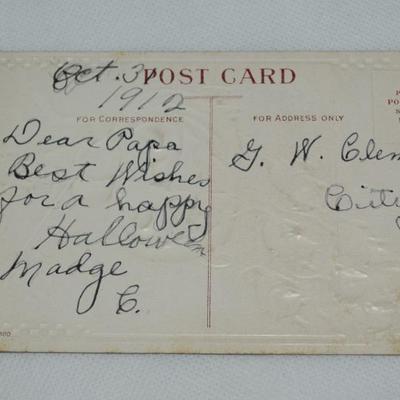 Oct. 31
1912
POST CARD
FOR CORRESPONDENCE
FOR ADDRESS ONLY
Dear Papa
Best Wishes
for a happy
Hallowe'en
Madge
C.
G. W. Clem
City